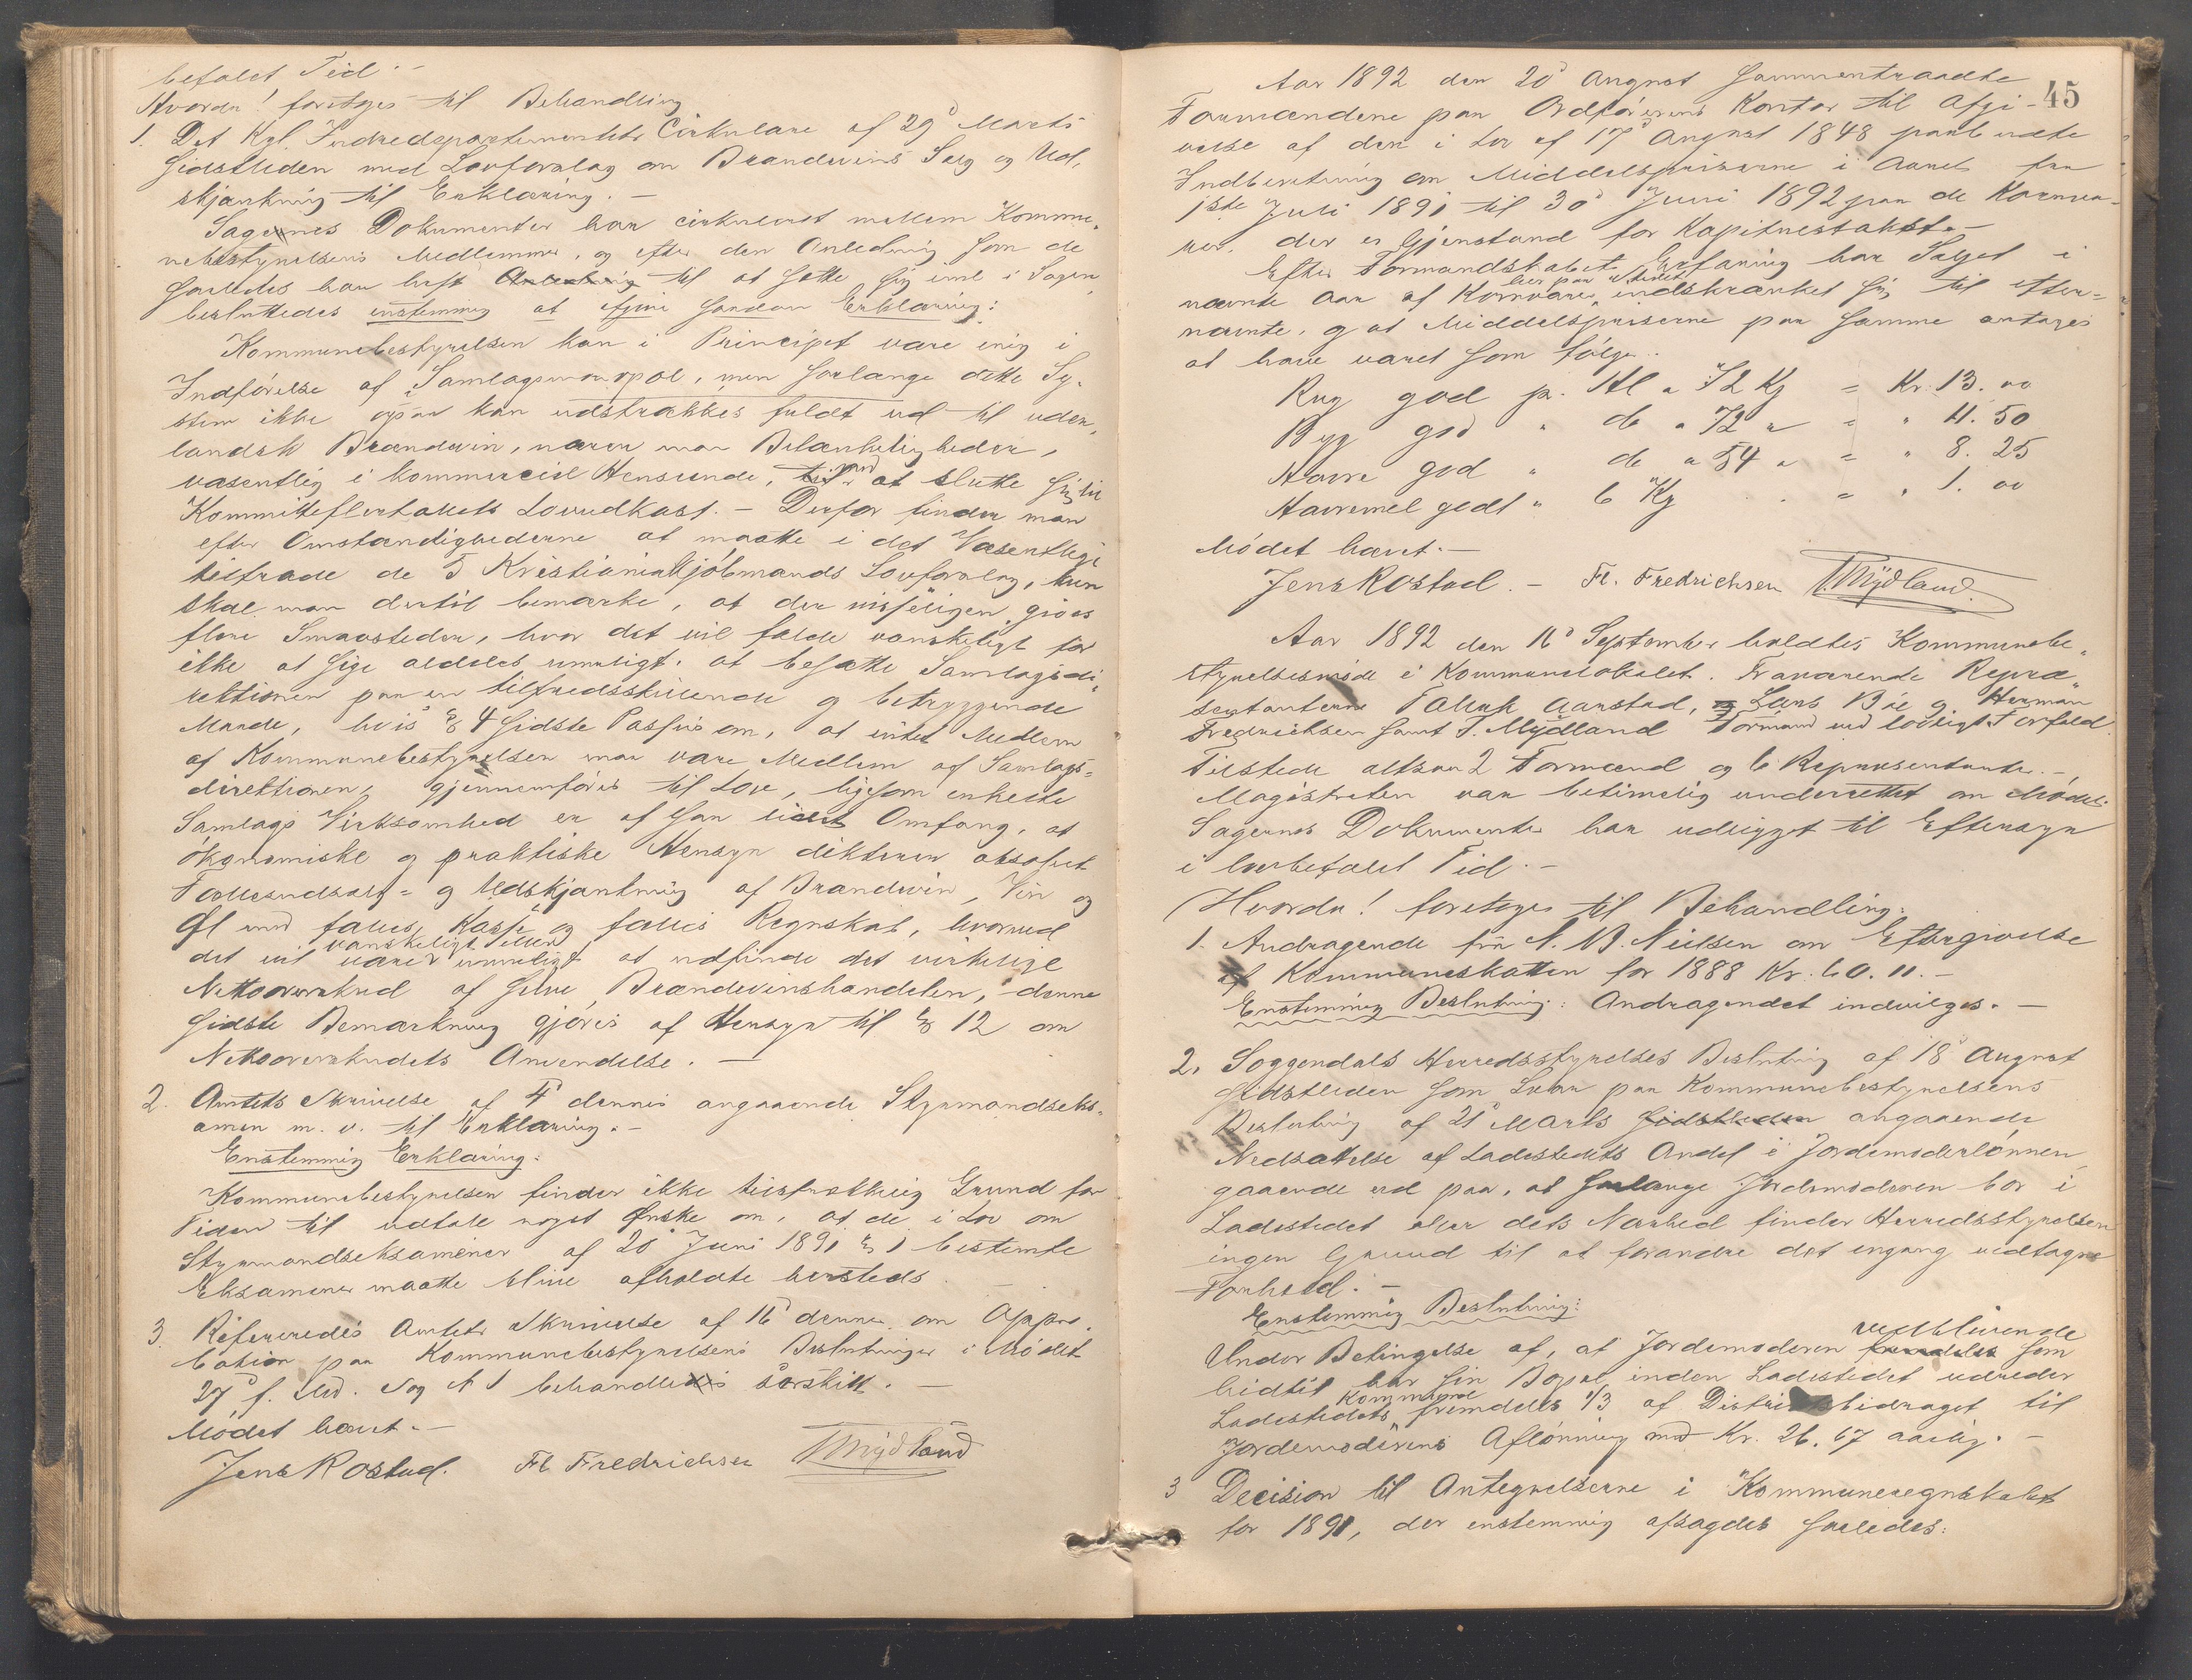 befalet Tid. –
Hvorda! foretoges til Behandling
1. Det Kgl. Indredepartementets Cirkulære af 29d Marts
sidstleden med Lovforslag om Brændevins Salg og Ud-
skjænkning til Erklæring. –
Sagernes Dokumenter har cirkuleret mellem Kommu-
nebestyrelsens Medlemmer, og efter den Anledning som de
saaledes har havt Anledning til at sætte sig ind i Sagen,
besluttedes enstemmig at afgive saadan Erklæring:
Kommunebestyrelsen kan i Principet være enig i
Indførelse af Samlagsmonopol, men saalænge dette Sy-
stem ikke ogsaa kan udstrækkes fuldt ud til uden-
landsk Brændevin, nærer man Betænkeligheder,
væsentlig i kommerciel Henseende, ved at slutte sig til
Komitteflertallets Lovudkast. – Derfor finder man
efter Omstændighederne at maatte i det Væsentlige
tiltræde de 5 Kristianiakjøbmænds Lovforslag, kun
skal man dertil bemærke, at der visseligen gives
flere Smaasteder, hvor det vil falde vanskeligt for
ikke at sige aldeles umuligt, at besætte Samlagsdi-
rektionen paa en tilfredsstillende og betryggende
Maade, hvis § 4 sidste Passus om, at intet Medlem
af Kommunebestyrelsen maa være Medlem af Samlags-
direktionen, gjennemføres til Lov, ligesom enkelte
Samlags Virksomhed er af saa lidet Omfang, at
økonomiske og praktiske Hensyn dikterer absolut
Fællesudsalg- og Udskjænkning af Brændevin, Vin og
Øl med fælles Kasse og fælles Regnskab, hvorved
det vil være vanskeligt eller umuligt at udfinde det virkelige
Nettooverskud af selve Brændevinshandelen, – denne
sidste Bemærkning gjøres af Hensyn til § 12 om
Nettooverskudets Anvendelse. –
2. Amtets Skrivelse af 4d dennes angaaende Styrmandseks-
amen m. v. til Erklæring. –
Enstemmig Erklæring:
Kommunebestyrelsen finder ikke tilstrækkelig Grund for
Tiden til udtale noget Ønske om, at de i Lov om
Styrmandseksamener af 20d Juni 1891 § 1 bestemte
Eksamener maatte blive afholdte hersteds. –
3. Refereredes Amtets Skrivelse af 16d dennes om Appro-
bation paa Kommunebestyrelsens Beslutninger i Mødet
27d f. Md. Sag N 1 behandledes særskilt. –
Mødet hævet. –
Jens Rostad. Fl. Fredrichsen T Mydland

45
Aar 1892 den 20d August sammentraadte
Formændene paa Ordførerens Kontor til Afgi-
velse af den i Lov af 17d August 1848 paabudte
Indberetning om Middelspriserne i Aaret fra
1ste Juli 1891 til 30d Juni 1892 paa de Kornva-
rer, der er Gjenstand for Kapitelstakst. –
Efter Formandskabets Erfaring har Salget i
nævnte Aar af Kornvarer her paa Stedet indskrænket sig til efter-
nævnte, og at Middelspriserne paa samme antages
at have været som følger:
Rug god pr. Hl a 72 Kg = Kr. 13. 00
Byg god " do " 72 " = " 11. 50
Havre god " do " 54 " = " 8. 25
Havremel godt " 6 Kg = " 1. 00
Mødet hævet. –
Jens Rostad. – Fl. Fredrichsen T. Mydland.
Aar 1892 den 16d September holdtes Kommunebe-
styrelsesmøde i Kommunelokalet. Fraværende Repræ-
sentanterne Aarstad, Lars Bøe og Herman
Fredrichsen samt T. Mydland Formand ved lovligt Forfald.
Tilstede altsaa 2 Formænd og 6 Repræsentanter. –
Magistraten var betimelig underrettet om Mødet.
Sagernes Dokumenter har udligget til Eftersyn
i lovbefalet Tid. –
Hvorda! foretoges til Behandling:
1. Andragende fra N. B. Nielsen om Eftergivelse
af Kommuneskatten for 1888 Kr. 60. 11. –
Enstemmig Beslutning: Andragendet indvilges. –
2. Soggendals Herredsstyrelses Beslutning af 18d August
sidstleden som Svar paa Kommunebestyrelsens
Beslutning af 21d Marts sidstleden angaaende
Nedsættelse af Ladestedets Andel i Jordemoderlønnen
gaaende ud paa, at saalænge Jordemoderen bor i
Ladestedet eller dets Nærhed finder Herredsstyrelsen
ingen Grund til at forandre det engang vedtagne
Forhold. –
Enstemmig Beslutning:
Under Betingelse af, at Jordemoderen vedblivende som
hidtil har sin Bopæl inden Ladestedet udreder
Ladestedets Kommune fremdeles 1/3 af Distriktsbidraget til
Jordemoderens Aflønning med Kr. 26.67 aarlig. –
3 Decision til Antegnelserne i Kommuneregnskabet
for 1891, der enstemmig afsagdes saaledes: